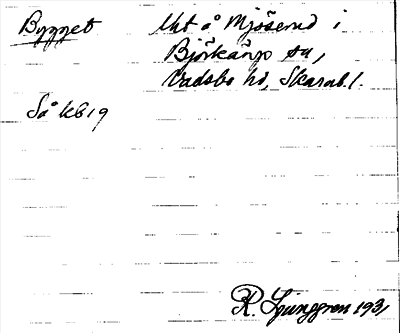 Bygget
Uht å Mjösered i
Björkäng sn,
Vadsbo hd, Skarab. l.
Så KB 19
R. Ljunggren 1931